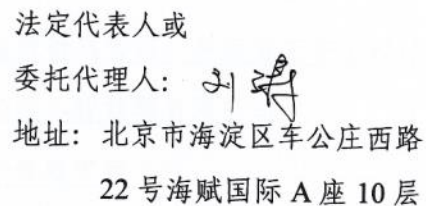 法定代表人或
委托代理人：刘
地址：北京市海淀区车公庄西路
22 号海赋国际 A 座 10 层